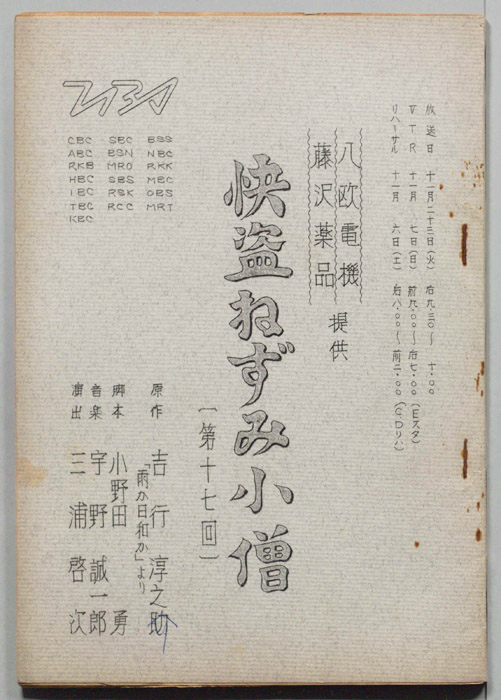 放送日 十一月二十三日(火) 后九.三〇〜一〇.〇〇
VTR 十一月 七日(日) 前九.〇〇〜后七.〇〇(Eスタ)
リハーサル 十一月 六日(土) 后八.〇〇〜前二.〇〇(CDリハ)
八欧電機
藤沢薬品
提供
快盗ねずみ小僧
〔第十七回〕
原作 吉行淳之助
「雨か日和か」より
脚本 小野田 勇
音楽 宇野誠一郎
演出 三浦啓次
TBS
CBC SBC BSS
ABC BSN NBC
RKB MRO RKK
HBC SBS MBC
IBC RSK OBS
TBC RCC MRT
KBC